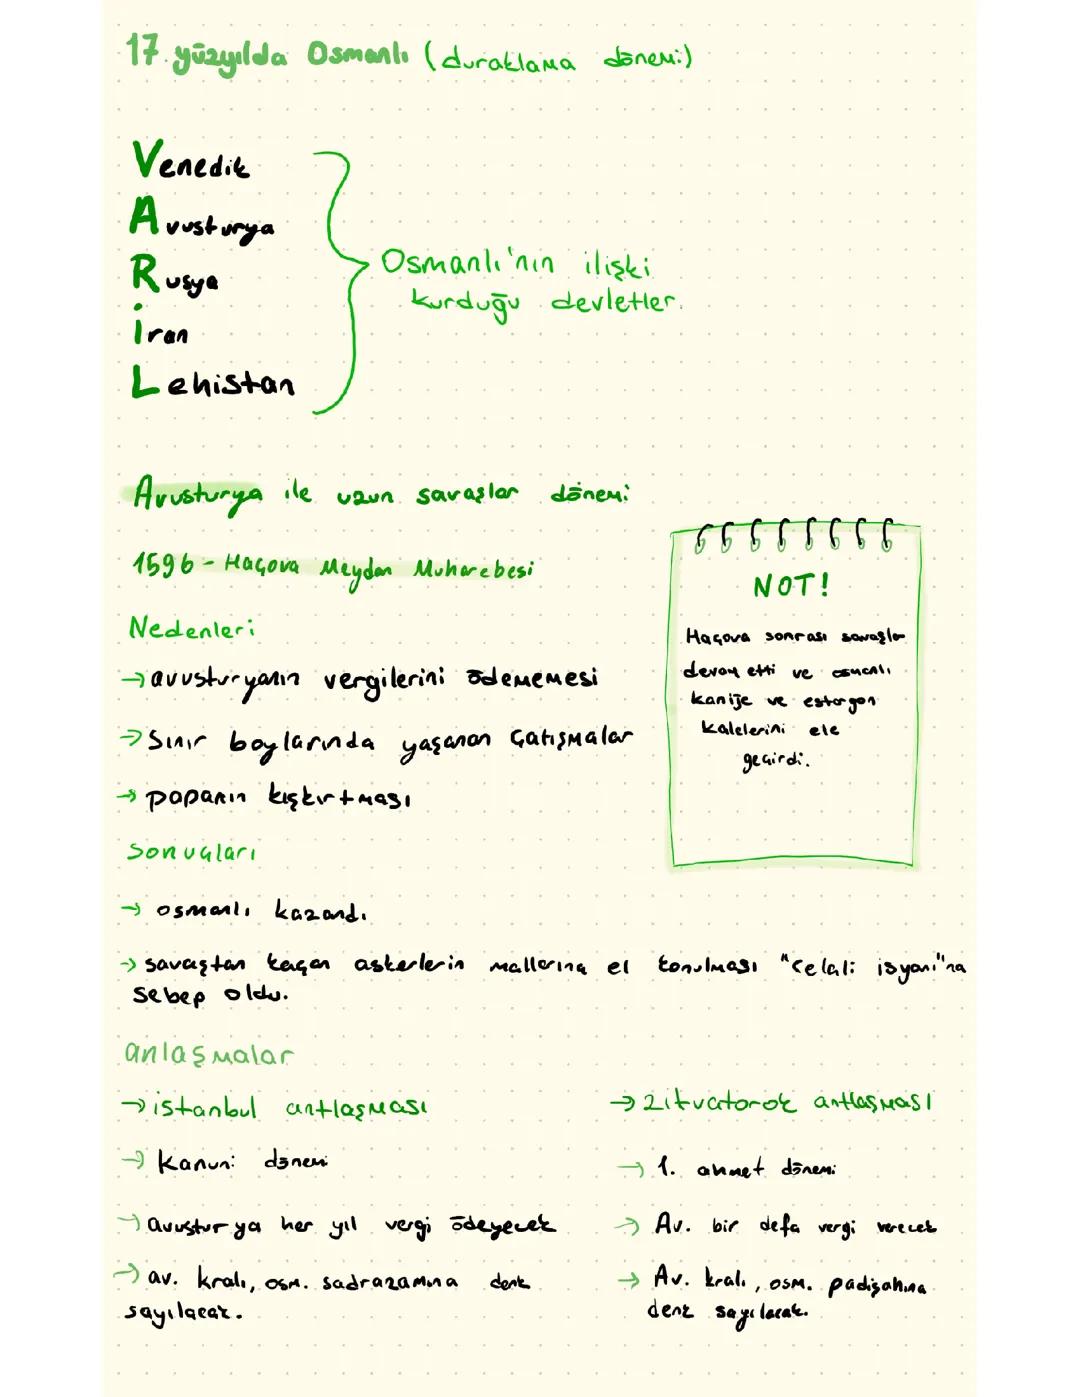 17. yüzyılda Osmanlı (duraklama dönemi)
Venedik
Avusturya
Rusya
İran
Lehistan
Osmanlı'nın ilişki
kurduğu devletler.
Avusturya ile uzun savaşlar dönemi
1596 - Haçova Meydan Muharebesi
Nedenleri
→ avusturyanın vergilerini ödememesi
→ Sınır boylarında yaşanan çatışmalar
→ papanın kışkırtması
NOT!
Haçova sonrası savaşlar
devam etti ve osmanlı
kanije ve estergon
kalelerini ele
geçirdi.
Sonuçları
→ osmanlı kazandı.
→ savaştan kaçan askerlerin mallarına el konulması "Celali isyanı"na
sebep oldu.
anlaşmalar
→ istanbul antlaşması
→ Kanuni dönemi
→ avusturya her yıl vergi ödeyecek
→ av. kralı, osm. sadrazamına denk
sayılacak.
→ zitvatorok antlaşması
→ 1. ahmet dönemi
→ Av. bir defa vergi verecek
→ Av. kralı, osm. padişahına
denk sayılacak.